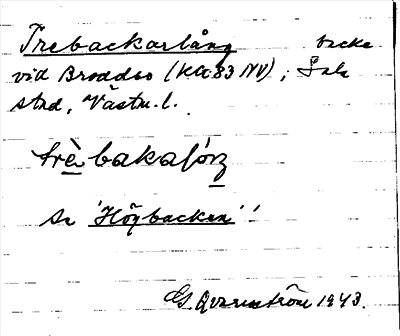 Trebackarlång backe
vid Broddbo (KA 83 NV), Sala
stad, Västm. l.
trèbakalóŋ
Se 'Högbacken'!
G. Qvarnström 1943.